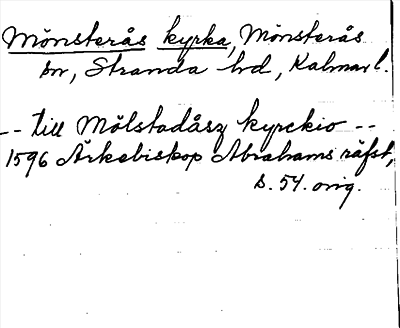 Mönsterås kyrka, Mönsterås
sn, Stranda hd, Kalmar l.
-- till Mölstadåsz kyrckio --
1596 Ärkebiskop Abrahams räfst,
s. 54. orig.